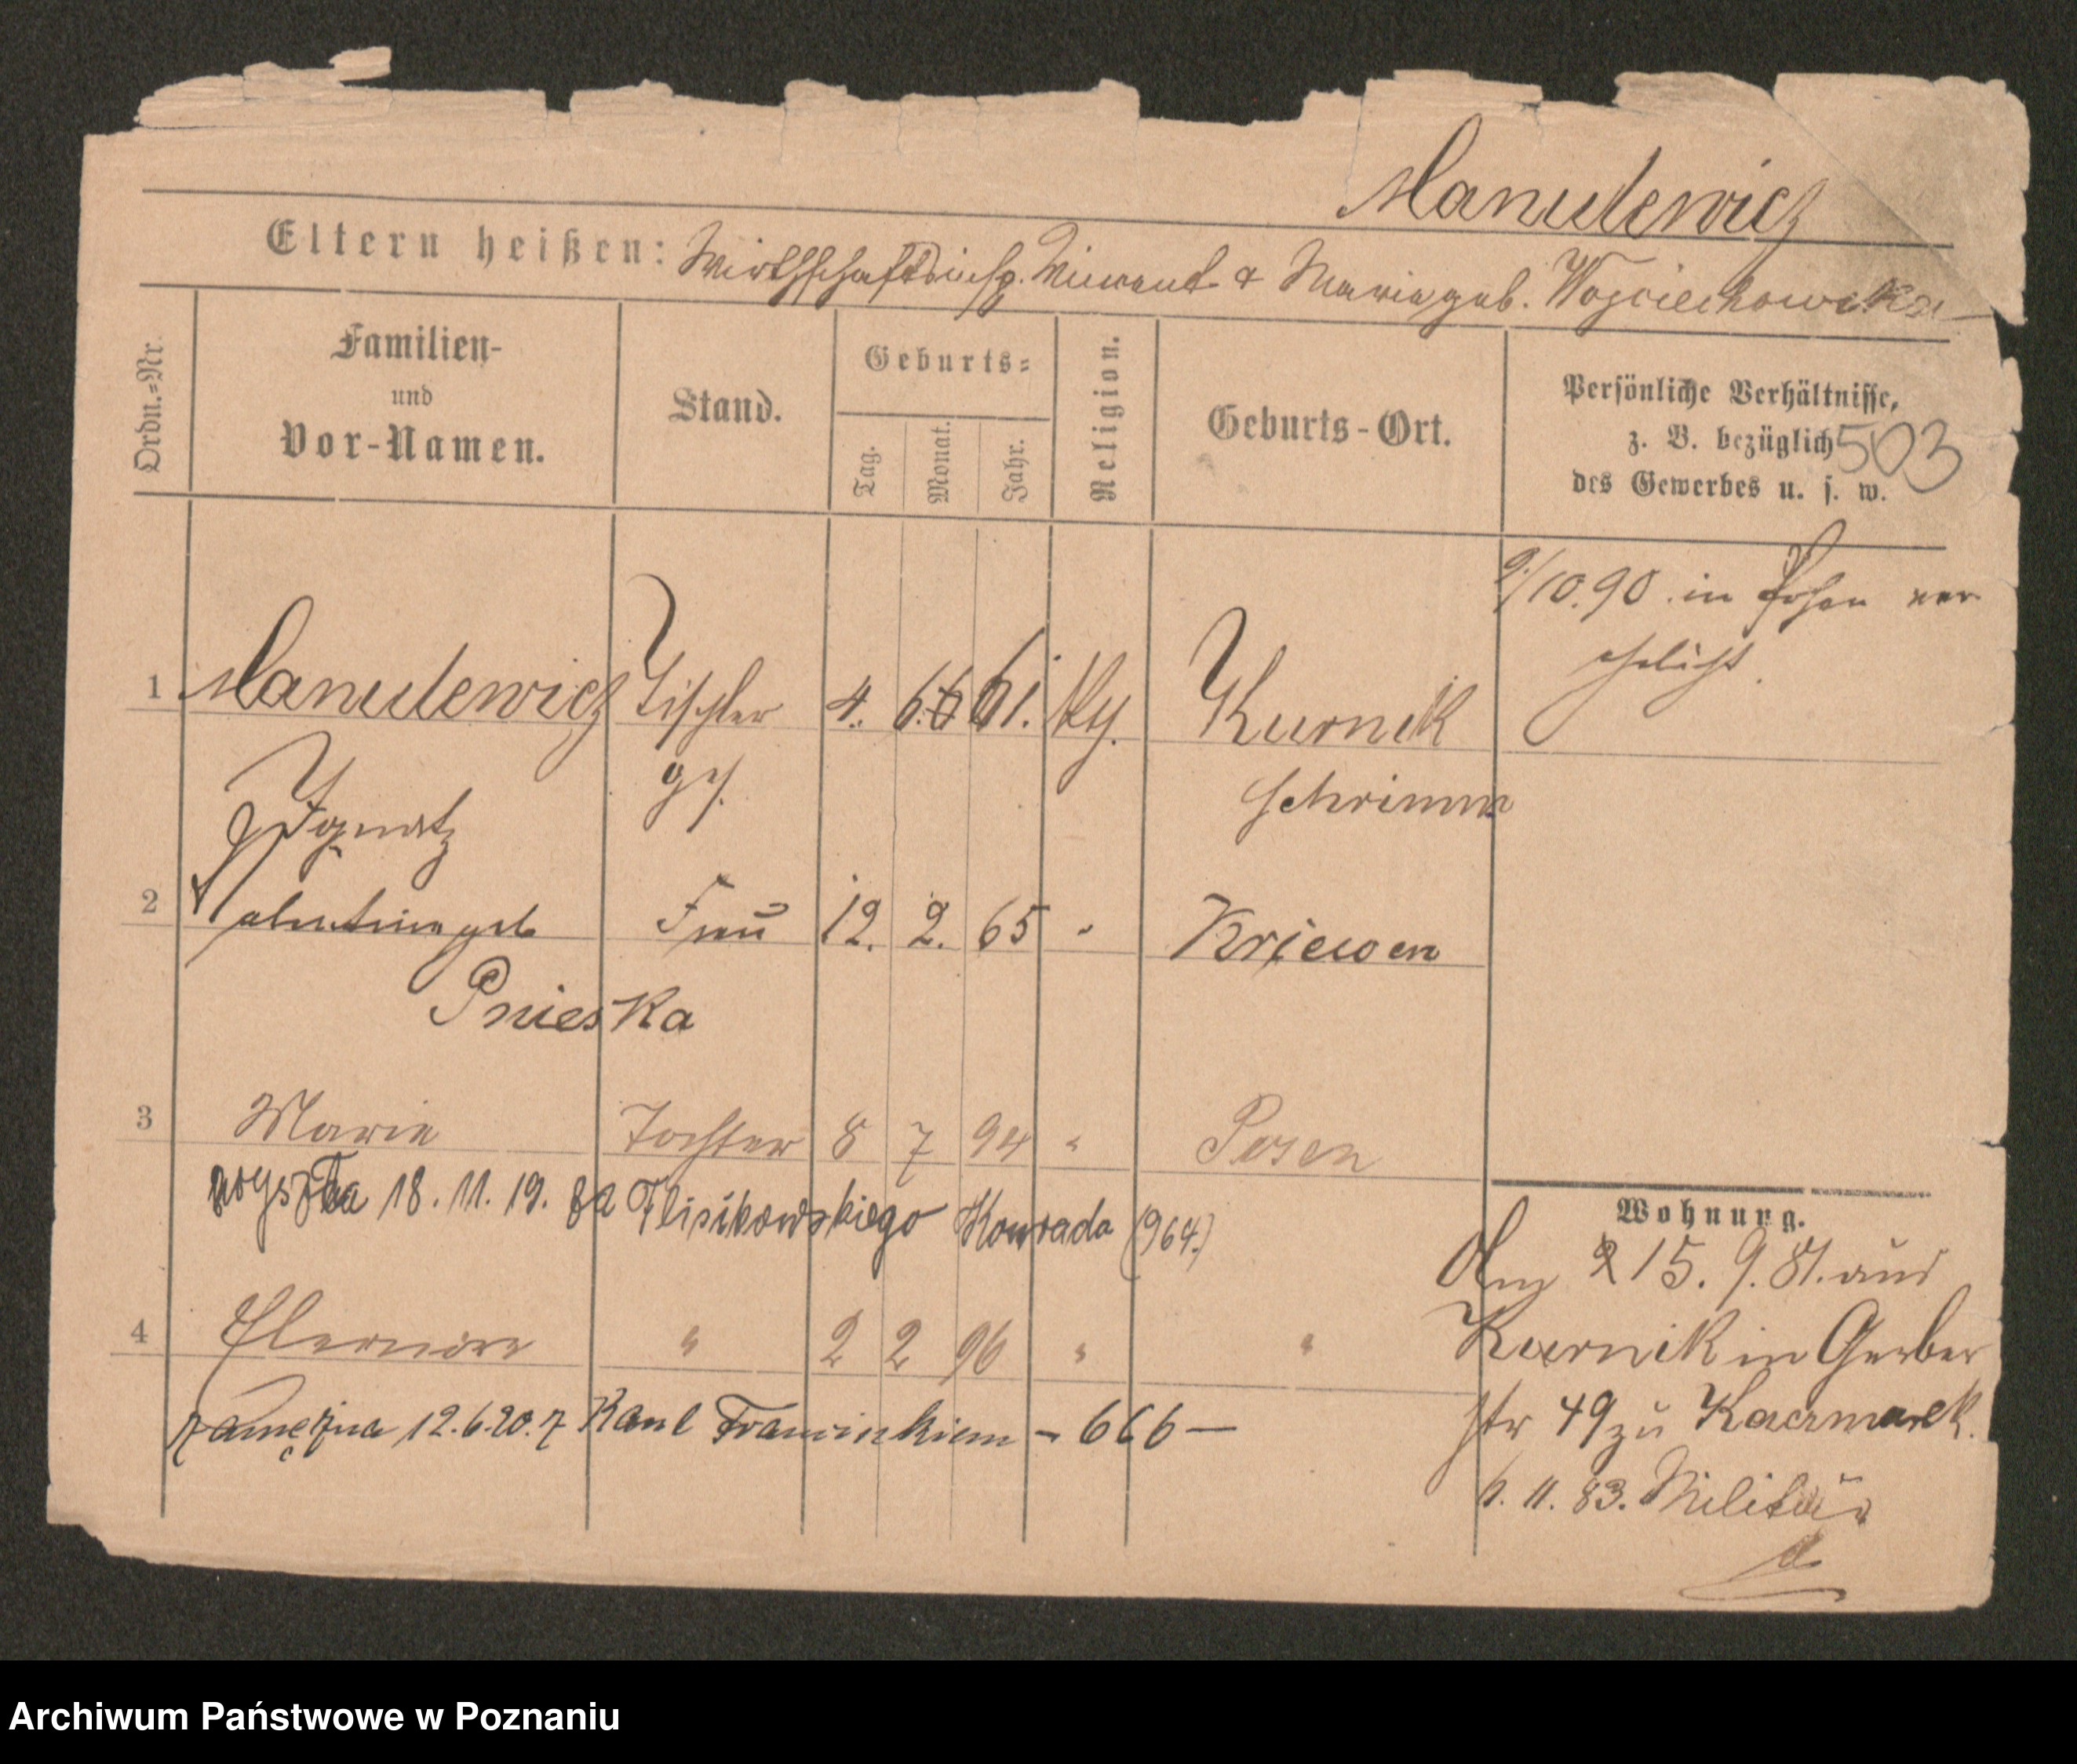 Manulewicz
Eltern heißen: Wirthschaftsinsp. Vincent & Marie geb. Wojciechowska
Ordn.=Nr.
Familien-
und
Vor-Namen.
Stand.
Geburts=
Tag.
Monat.
Jahr.
Religion.
Geburts-Ort.
Persönliche Verhältnisse,
z. B. bezüglich
des Gewerbes u. s. w.
503
9/10.90 in Posen ver
ehelicht.
1 Manulewicz Tischler 4. 6. 61. Kurnik
Ignatz ges. Schrimm
2 Valentine geb Frau 12. 2. 65 " Kriewen
Pnieska
3 Marie Tochter 8 7 94 " Posen
wyszła 18.11.19. za Flisikowskiego Konrada (964.)
4 Eleonore " 2 2 96 " "
zamężna 12.6.20. z - 666 -
Wohnung.
Am 15. 9. 81. aus
Kurnik in Gerber
str 49 zu Kaczmarek.
6. 11. 83. Militär